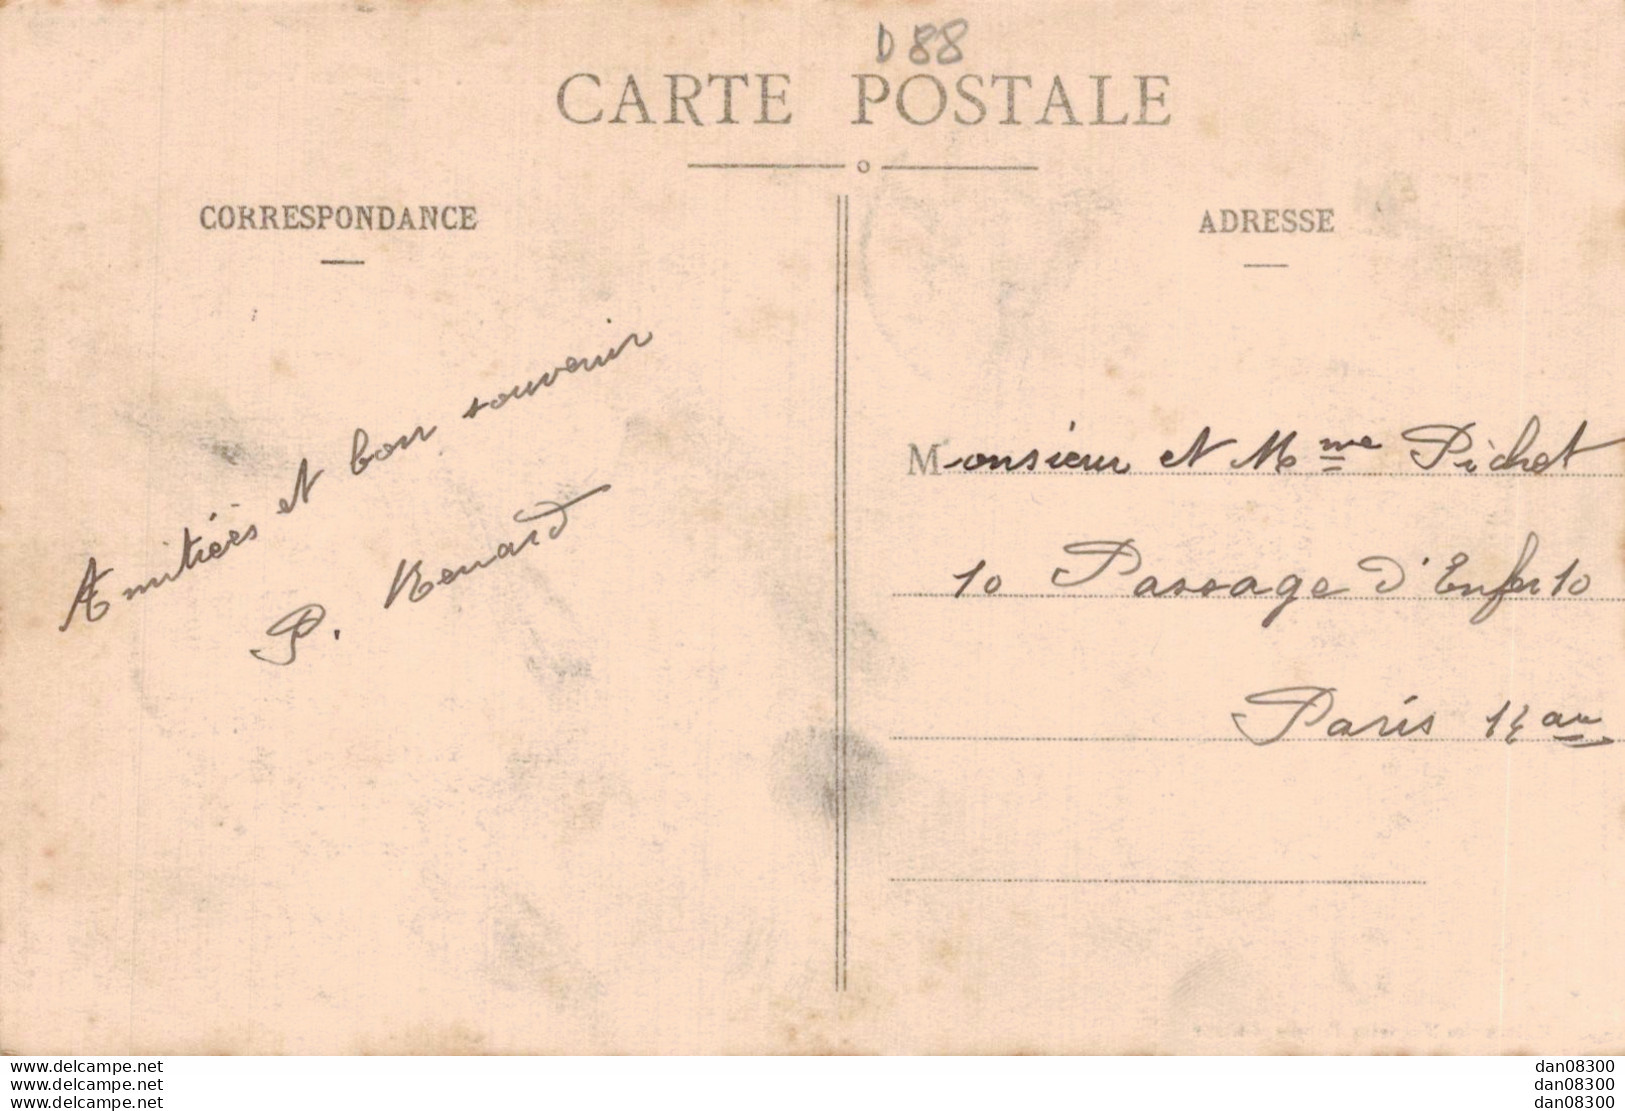 D88
CARTE POSTALE
CORRESPONDANCE
ADRESSE
Amitiés et bon souvenir
P. Renard
Monsieur et Mme Pichet
10 Passage d'Enfer 10
Paris 14 arr
www.delcampe.net
www.delcampe.net
www.delcampe.net
dan08300
dan08300
dan08300